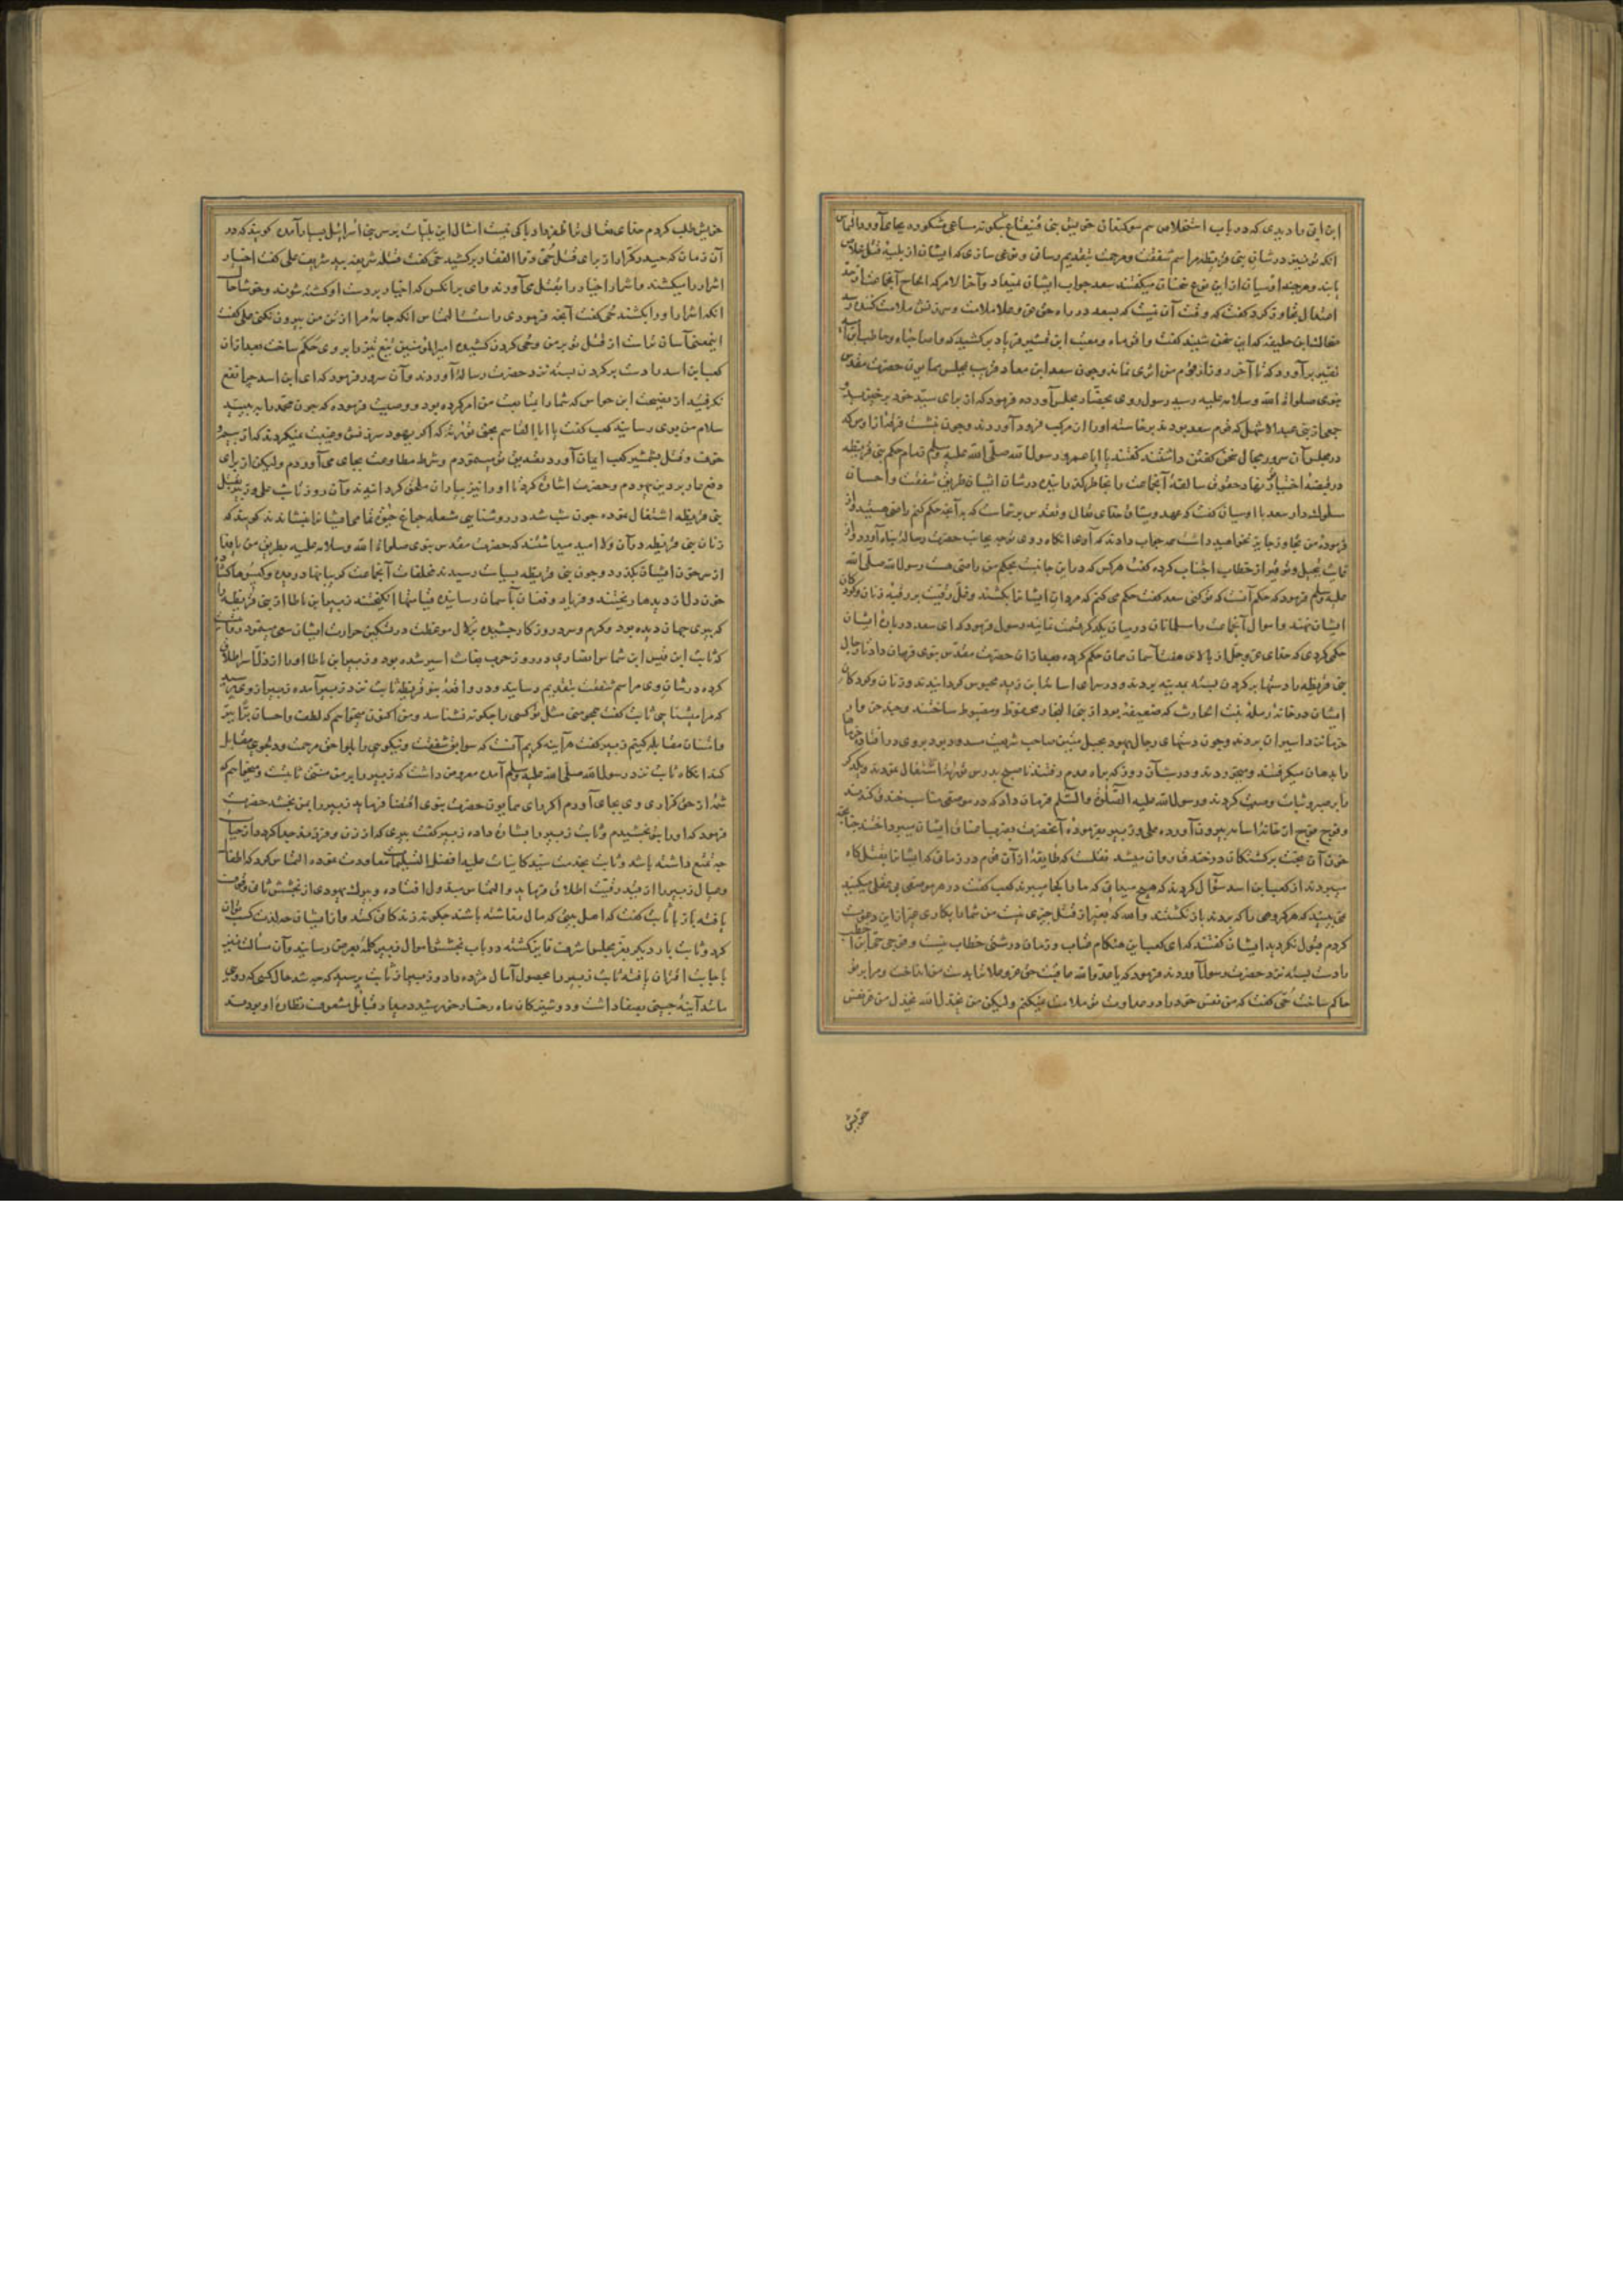 ابن ابی را دیدی که در باب استخلاص هم سوکندان خویش بنی قینقاع چکونه مساعی مشکوره بجای آورد التماس
آنکه تو نیز در شان بنی قریظه مراسم شفقت و مرحمت بتقدیم رسانی و نوعی سازی که ایشان از بلیه قتل خلاص
یابند و هرچند اوسیان ازین نوع سخنان میکفتند سعد جواب ایشان نمیداد و آخر الامر که الحاح آنجماعت از حد
اعتدال تجاوز کرد کفت که وقت آن نیست که سعد در راه حق عز و علا ملامت و سرزنش ملامت کننده
ضحاک ابن خلیفه که این سخن شنید کفت وا قوماه و معتب ابن قشیر فریاد برکشید که وا صباحاه و حاطب ابن امیه
نفیر برآورد که تا آخر روز از قوم من اثری نماند و چون سعد ابن معاد قریب بمجلس همایون حضرت مقدس
نبوی صلوات الله وسلامه علیه رسید رسول روی بحضار مجلس آورده فرمود که از برای سید خود برخیزید و
جمعی از بنی عبد الاشهل که قوم سعد بودند برخاسته او را از مرکب فرود آوردند و چون نشست فرقه از اوس که
در مجلس آن سرور مجال سخن کفتن داشتند کفتند یا ابا عمرو رسول الله صلی الله علیه وسلم تمام حکم بنی قریظه
در قبضه اختیار تو نهاد حقوق سالفه آنجماعت را بخاطر بکذران و در شان ایشان طریق شفقت و احسان
سلوک دار سعد با اوسیان کفت که عهد و میثاق خدای تعالی و تقدس بر شماست که به آنچه حکم کنم راضی هستید و از
فرموده من تجاوز جایز نخواهید داشت همه جواب دادند که آری آنکاه روی توجه بجانب حضرت رسالت پناه آورد و از
غایت تبجیل و توقیر از خطاب اجتناب کرده کفت هرکس که درین جانبست بحکم من راضی هست رسول الله صلی الله
علیه وسلم فرمود که حکم آنست که تو کنی سعد کفت حکم می کنم که مردان ایشان را بکشند و قلاده رقیت بر رقبه زنان و کودکان
ایشان نهند و اموال آنجماعت را مسلمانان در میان یکدیکر قسمت نمایند رسول فرمود که ای سعد در باره ایشان
حکمی کردی که خدای عز وجل از بالای هفت آسمان همان حکم کرده بعد از آن حضرت مقدس نبوی فرمان داد تا رجال
بنی قریظه را دستها بر کردن بسته بمدینه بردند و در سرای اسامه ابن زید محبوس کردانیدند و زنان و کودکان
ایشان در خانه رمله بنت الحارث که ضعیفه بود از بنی النجار محفوظ و مضبوط ساختند و چند خروار
خرما نزد اسیران بردند و چون دستهای رجال یهود بحبل متین صاحب شریعت مسدود بود بروی در افتاده خرما
را بدهان میکرفتند و میخوردند و در شب آن روز که براه عدم رفتند تا صبح بدرس توریة اشتغال نمودند و یکدیکر
را بصبر و ثبات وصیت کردند و رسول الله علیه الصلوة والسلم فرمان داد که در موضعی مناسب خندق کندند
و فوج فوج از خانه اسامه بیرون آورده علی و زبیر بفرموده آنحضرت بضرب اعناق ایشان میپرداختند چنانچه
خون آن بخت برکشتکان در خندق روان میشد نقلست که طایفه از آن قوم در زمانی که ایشان را بقتلکاه
میبردند از کعب ابن اسد سؤال کردند که هیچ میدانی که ما را بکجا میبرند کعب کفت در هر موضعی بی عقلی میکنید
نمی بینید که هر کروهی را که بردند باز نکشتند والله که بغیر از قتل چیزی نیست من شما را بکاری جز ازین دعوت
کردم قبول نکردید ایشان کفتند که ای کعب این هنکام عتاب و زمان درشتی خطاب نیست و چون حیی ابن اخطب
را دست بسته نزد حضرت رسول آوردند فرمود که یا عدو الله عاقبت حق عز و علا ترا بدست من انداخت و مرا بر تو
حاکم ساخت حیی کفت که من نفس خود را در عداوت تو ملامت نمیکنم ولیکن من یخذل الله یخذل من عز نفس
خویش
خویش طلب کردم خدای تعالی ترا ظفر داد باکی نیست امثال این بلیات بر سر بنی اسرائیل بسیار آمده کویند که در
آن زمان که حیدر کرار از برای قتل حیی ذو الفقار برکشید حیی کفت قتله شریفه بید شریف علی کفت اخیار
اشرار را میکشند و اشرار اخیار را بقتل می آورند وای بر آنکس که اخیار بر دست او کشته شوند و خوشا حال
آنکه اشرار او را بکشند حیی کفت آنچه فرمودی راست التماس آنکه جامه مرا از تن من بیرون نکنی علی کفت
اینمعنی آسان تر است از قتل تو بر من و حیی کردن کشیده امیر المومنین تیغ تیز را بر وی حکم ساخت بعد از آن
کعب ابن اسد را دست بر کردن بسته نزد حضرت رسالت آوردند و آن سرور فرمود که ای ابن اسد چرا نفع
نکرفتید از نصیحت ابن حواس که شما را بمتابعت من امر کرده بود و وصیت فرموده که چون محمد را ببینید
سلام من بوی رسانید کعب کفت یا ابا القاسم بحق توریة که اکر یهود سرزنش و غیبت نمیکردند که از بیم
خوف و قتل بشمشیر کعب ایمان آورد تصدیق تو مینمودم و شرط مطاوعت بجای می آوردم ولیکن از برای
دفع عار بر دین یهودم و حضرت اشارت کرد تا او را نیز بیاران ملحق کردانیدند و آن روز تا شب علی و زبیر بقتل
بنی قریظه اشتغال نموده چون شب شد در روشنایی شعله چراغ حیوة تمامی ایشان را بنشاندند کویند که
زنان بنی قریظه در آن ولا امید میداشتند که حضرت مقدس نبوی صلوات الله وسلامه علیه بطریق من یا فدا
از سر خون ایشان بکذرد و چون بنی قریظه بسیاست رسیدند مخلفات آنجماعت کریبانها دریده و کیسوها کشاده
خون دل از دیدها ریختند و فریاد و فغان بآسمان رسانیده قیامتها انکیختند زبیر ابن باطا از بنی قریظه را
که پیری جهان دیده بود و کرم و سرد روزکار چشیده بزلال موعظت در تسکین حرارت ایشان سعی مینمود
که ثابت ابن قیس ابن شماس انصاری در روز حرب بعاث اسیر شده بود و زبیر ابن باطا او را از ذل اسر اطلاق
کرده در شان وی مراسم شفقت بتقدیم رسانید و در واقعه بنو قریظه ثابت نزد زبیر آمده زبیر از وی پرسید
که مرا میشناسی ثابت کفت همچو منی مثل تو کسی را چکونه نشناسد و من اکنون میخواهم که لطف و احسان ترا ببر
و امتنان مقابله کنم زبیر کفت هرآینه کریم آنست که سوابق شفقت و نیکویی را بلواحق مرحمت و دلجویی مقابل
کند آنکاه ثابت نزد رسول الله صلی الله علیه وسلم آمده معروض داشت که زبیر را بر من منتی ثابتست و میخواهم که
شمه از حق کزاری وی بجای آورم اکر رای همایون حضرت نبوی اقتضا فرماید زبیر را بمن بخشد حضرت
فرمود که او را بتو بخشیدم و ثابت زبیر را بشارت داده زبیر کفت پیری که از زن و فرزند جدا کردد از حیات
چه تمتع داشته باشد و ثابت بخدمت سید کاینات علیه افضل التسلیمات معاودت نموده التماس کرد که اطفال
و عیال زبیر را از قید رقیت اطلاق فرماید و التماس مبذول افتاده و پیر یهودی از بخشش ثانی وقوف
یافته باز با ثابت کفت که اهل بیتی که مال نداشته باشند چکونه زندکانی کنند و از ایشان چه لذت کسب توان
کرد و ثابت بار دیکر بعز مجلس اشرف فایز کشته در باب بخشش اموال زبیر کلمه بعرض رسانید و آن مسألت نیز
باجابت اقتران یافته ثابت زبیر را بحصول آمال مژده داد و زبیر از ثابت پرسید که چه شد حال کسی که روی او
مانند آینه چینی بصفا داشت و دوشیزکان ماه رخسار خورشید دیدار قبایل مشعوف نظاره او بودند